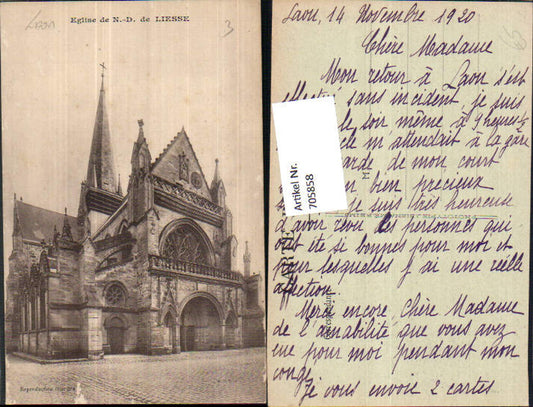 Eglise de N.-D. de LIESSE
Laon
3
Reproduction interdite
Laon, 14 Novembre 1920
Chère Madame
Mon retour à Laon s'est
sans incident, je suis
le soir même à 9 heures
m'attendait à la gare
de mon court
bien précieux
je suis très heureuse
d'avoir revu des personnes qui
ont été si bonnes pour moi et
pour lesquelles j'ai une réelle
affection.
Merci encore, Chère Madame
de l'amabilité que vous avez
eue pour moi pendant mon
congé.
Je vous envoie 2 cartes
Artikel Nr.
705858
CARTE